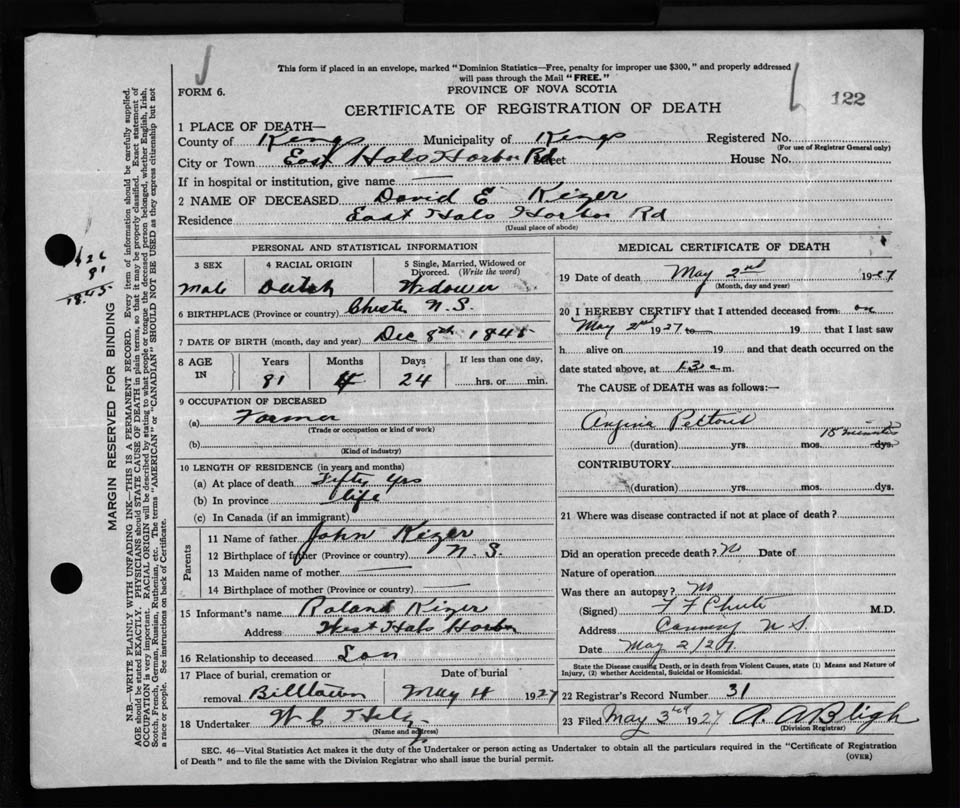 This form if placed in an envelope, marked "Dominion Statistics—Free, penalty for improper use $300," and properly addressed
will pass through the Mail "FREE."
FORM 6.
PROVINCE OF NOVA SCOTIA
122
CERTIFICATE OF REGISTRATION OF DEATH
1 PLACE OF DEATH—
County of Kings Municipality of Kings Registered No.
(For use of Registrar General only)
City or Town East Hals Harbor Rd Street House No.
If in hospital or institution, give name —
2 NAME OF DECEASED David E Kizer
Residence East Hals Harbor Rd
(Usual place of abode)
PERSONAL AND STATISTICAL INFORMATION
3 SEX 4 RACIAL ORIGIN 5 Single, Married, Widowed or Divorced. (Write the word)
Male Dutch Widower
6 BIRTHPLACE (Province or country) Chester N.S.
7 DATE OF BIRTH (month, day and year) Dec 8th 1845
8 AGE IN Years Months Days If less than one day,
81 4 24 hrs. or min.
9 OCCUPATION OF DECEASED
(a) Farmer
(Trade or occupation or kind of work)
(b)
(Kind of industry)
10 LENGTH OF RESIDENCE (in years and months)
(a) At place of death Fifty yrs
(b) In province life
(c) In Canada (if an immigrant)
Parents
11 Name of father John Kizer
12 Birthplace of father (Province or country) N.S.
13 Maiden name of mother —
14 Birthplace of mother (Province or country) —
15 Informant's name Roland Kizer
Address West Hals Harbor
16 Relationship to deceased Son
17 Place of burial, cremation or removal Billtown Date of burial May 4 1927
18 Undertaker W C
(Name and address)
MEDICAL CERTIFICATE OF DEATH
19 Date of death May 2nd 1927
(Month, day and year)
20 I HEREBY CERTIFY that I attended deceased from on
May 2nd 1927 to 19 that I last saw
h alive on 19 and that death occurred on the
date stated above, at m.
The CAUSE OF DEATH was as follows:—
Angina Pectoris
15 minutes
(duration) yrs. mos. dys.
CONTRIBUTORY.
(duration) yrs. mos. dys.
21 Where was disease contracted if not at place of death?
Did an operation precede death? No Date of
Nature of operation
Was there an autopsy? No
(Signed) F F Chute M.D.
Address Canning N S
Date May 2/27
State the Disease causing Death, or in death from Violent Causes, state (1) Means and Nature of
Injury, (2) whether Accidental, Suicidal or Homicidal.
22 Registrar's Record Number 31
23 Filed May 3rd 1927 A. A Bligh
(Division Registrar)
SEC. 46—Vital Statistics Act makes it the duty of the Undertaker or person acting as Undertaker to obtain all the particulars required in the "Certificate of Registration
of Death" and to file the same with the Division Registrar who shall issue the burial permit.
(OVER)
MARGIN RESERVED FOR BINDING
N.B.—WRITE PLAINLY WITH UNFADING INK—THIS IS A PERMANENT RECORD. Every item of information should be carefully supplied.
AGE should be stated EXACTLY. PHYSICIANS should STATE CAUSE OF DEATH in plain terms, so that it may be properly classified. Exact statement of
OCCUPATION is very important. RACIAL ORIGIN will be described by stating to what people or tongue the deceased person belonged, whether English, Irish,
Scotch, French, German, Russian, Ruthenian, etc. The terms "AMERICAN" or "CANADIAN" SHOULD NOT BE USED as they express citizenship but not
a race or people. See instructions on back of Certificate.
81
1845